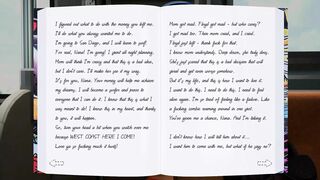 I figured out what to do with the money you left me.
I'll do what you always wanted me to do.
I'm going to San Diego, and I will learn to surf!
For real, Nana! I'm going! I spent all night planning.
Mum will think I'm crazy and that this is a bad idea,
but I don't care. I'll make her pie it my way.
It's for you, Nana. Your money will help me achieve
my dreams. I will become a surfer and prove to
everyone that I can do it. I know that this is what I
was meant to do! I know this in my heart, and thanks
to you, it will happen.
So, turn your head a bit when you watch over me
because WEST COAST HERE I COME!
Love you so fucking much it hurts!
Mum got mad. Floyd got mad - but who cares?
I got mad too. Then mum cried, and I cried.
Floyd just left - thank fuck for that.
I know mum understands. Deep down, she truly does.
She's just scared that this is a bad decision that will
grand and get even worse somehow.
But it's my life, and this is how I want to live it.
I want to do this, I need to do this. I need to feel
alive again. I'm so tired of feeling like a failure. Like
a fucking zombie roaming around in my grief.
You've given me a chance, Nana. And I'm taking it.
I don't know how I will tell him about it...
I want him to come with me, but what if he says no?